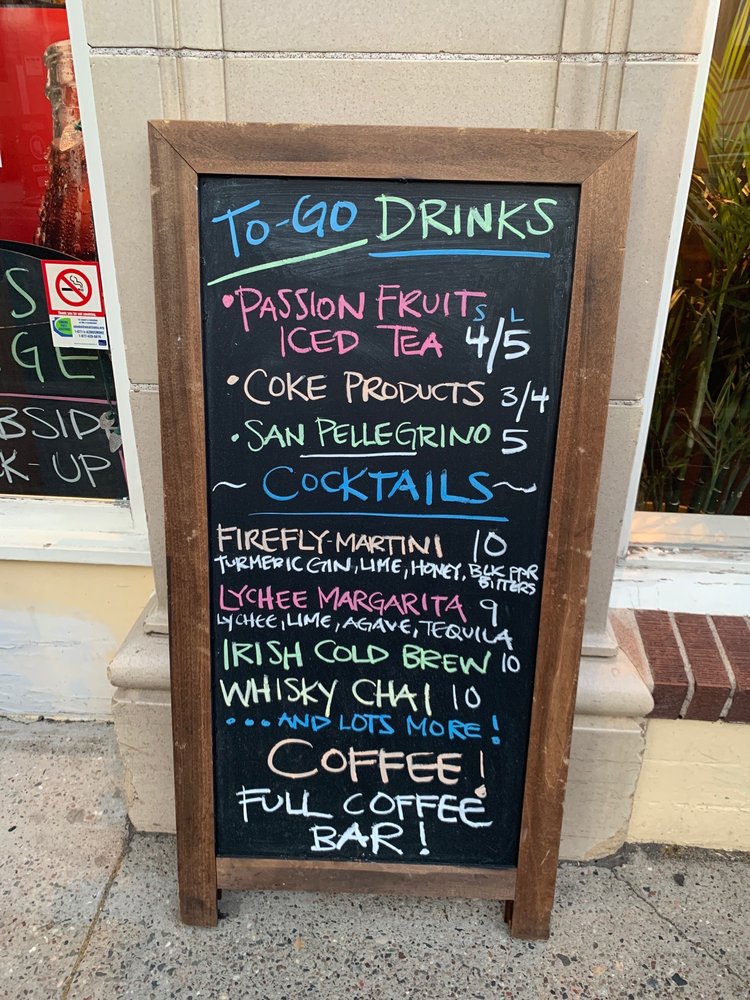 TO-GO DRINKS
• PASSION FRUIT
ICED TEA S L 4/5
• COKE PRODUCTS 3/4
• SAN PELLEGRINO 5
~ COCKTAILS ~
FIREFLY-MARTINI 10
TURMERIC GIN, LIME, HONEY, BLK PPR
BITTERS
LYCHEE MARGARITA 9
LYCHEE, LIME, AGAVE, TEQUILA
IRISH COLD BREW 10
WHISKY CHAI 10
...AND LOTS MORE!
COFFEE!
FULL COFFEE
BAR!
Thank you for not smoking.